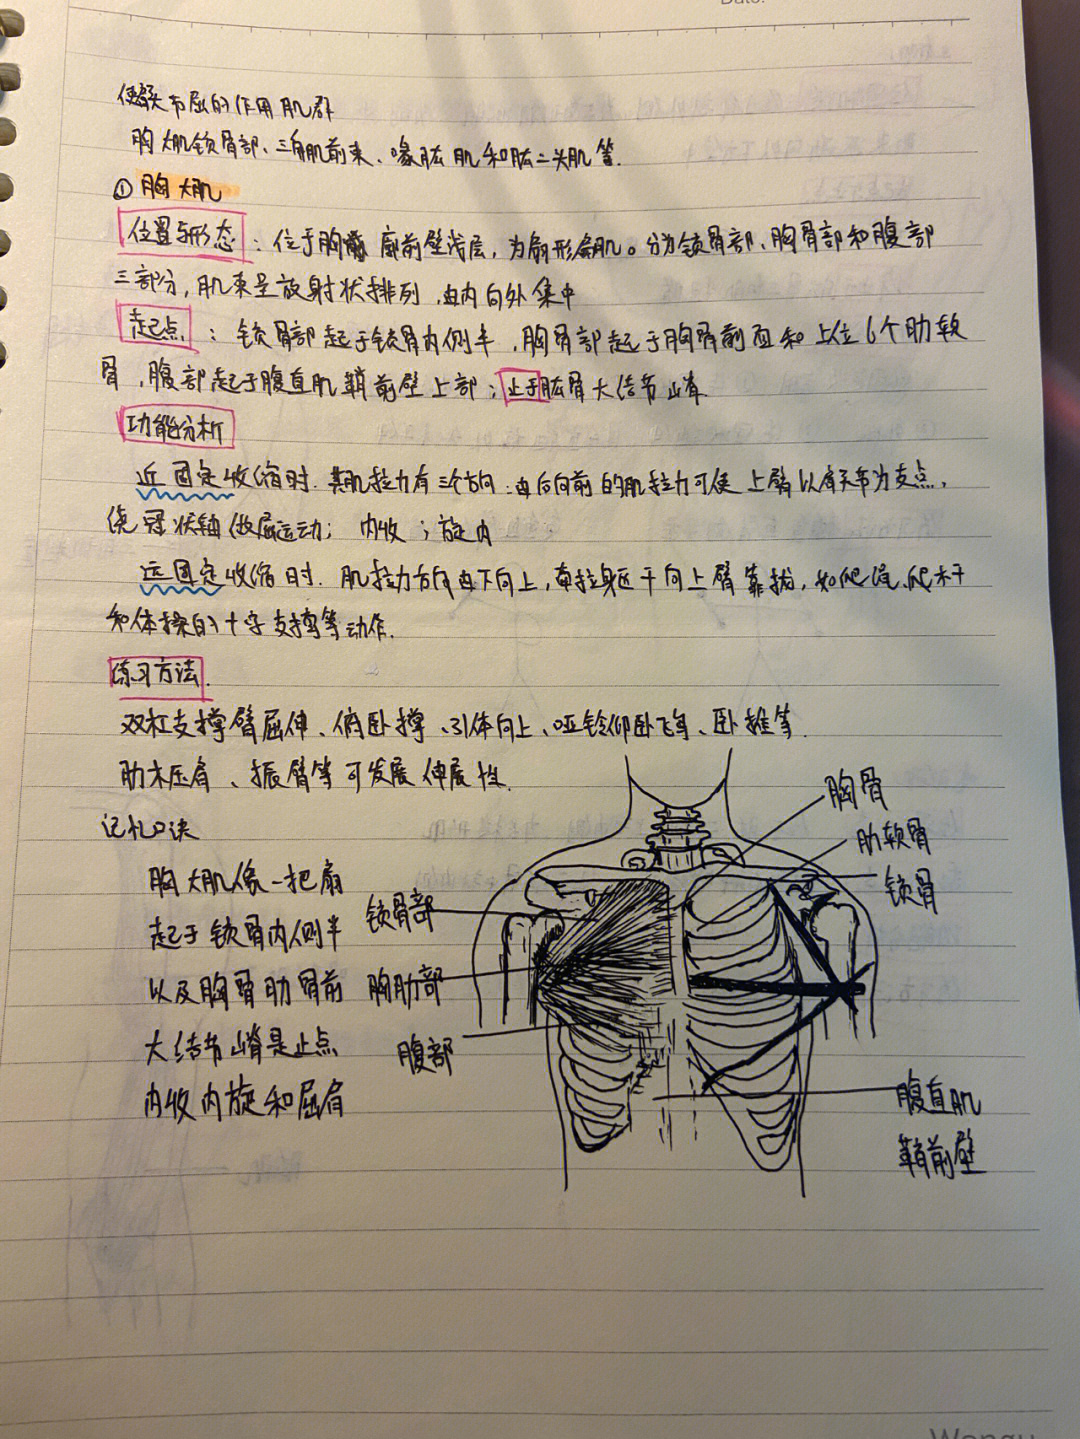 Date:
使肩关节屈的作用肌群
胸大肌锁骨部、三角肌前束、喙肱肌和肱二头肌等.
① 胸大肌
位置与形态：位于胸廓前壁浅层，为扇形扁肌。分为锁骨部、胸骨部和腹部
三部分，肌束呈放射状排列，由内向外集中
起点：锁骨部起于锁骨内侧半，胸骨部起于胸骨前面和上位6个肋软
骨，腹部起于腹直肌鞘前壁上部；止于肱骨大结节嵴.
功能分析
近固定收缩时.其肌拉力有三个方向:由后向前的肌拉力可使上臂以肩关节为支点，
绕冠状轴做屈运动；内收；旋内
远固定收缩时.肌拉力方向由下向上，牵拉躯干向上臂靠拢，如爬绳、爬杆
和体操的十字支撑等动作.
练习方法.
双杠支撑臂屈伸、俯卧撑、引体向上、哑铃仰卧飞鸟、卧推等.
肋木压肩、振臂等可发展伸展性.
记忆口诀
胸大肌像一把扇
起于锁骨内侧半
以及胸骨肋骨前
大结节嵴是止点
内收内旋和屈肩
胸骨
肋软骨
锁骨
锁骨部
胸肋部
腹部
腹直肌
鞘前壁